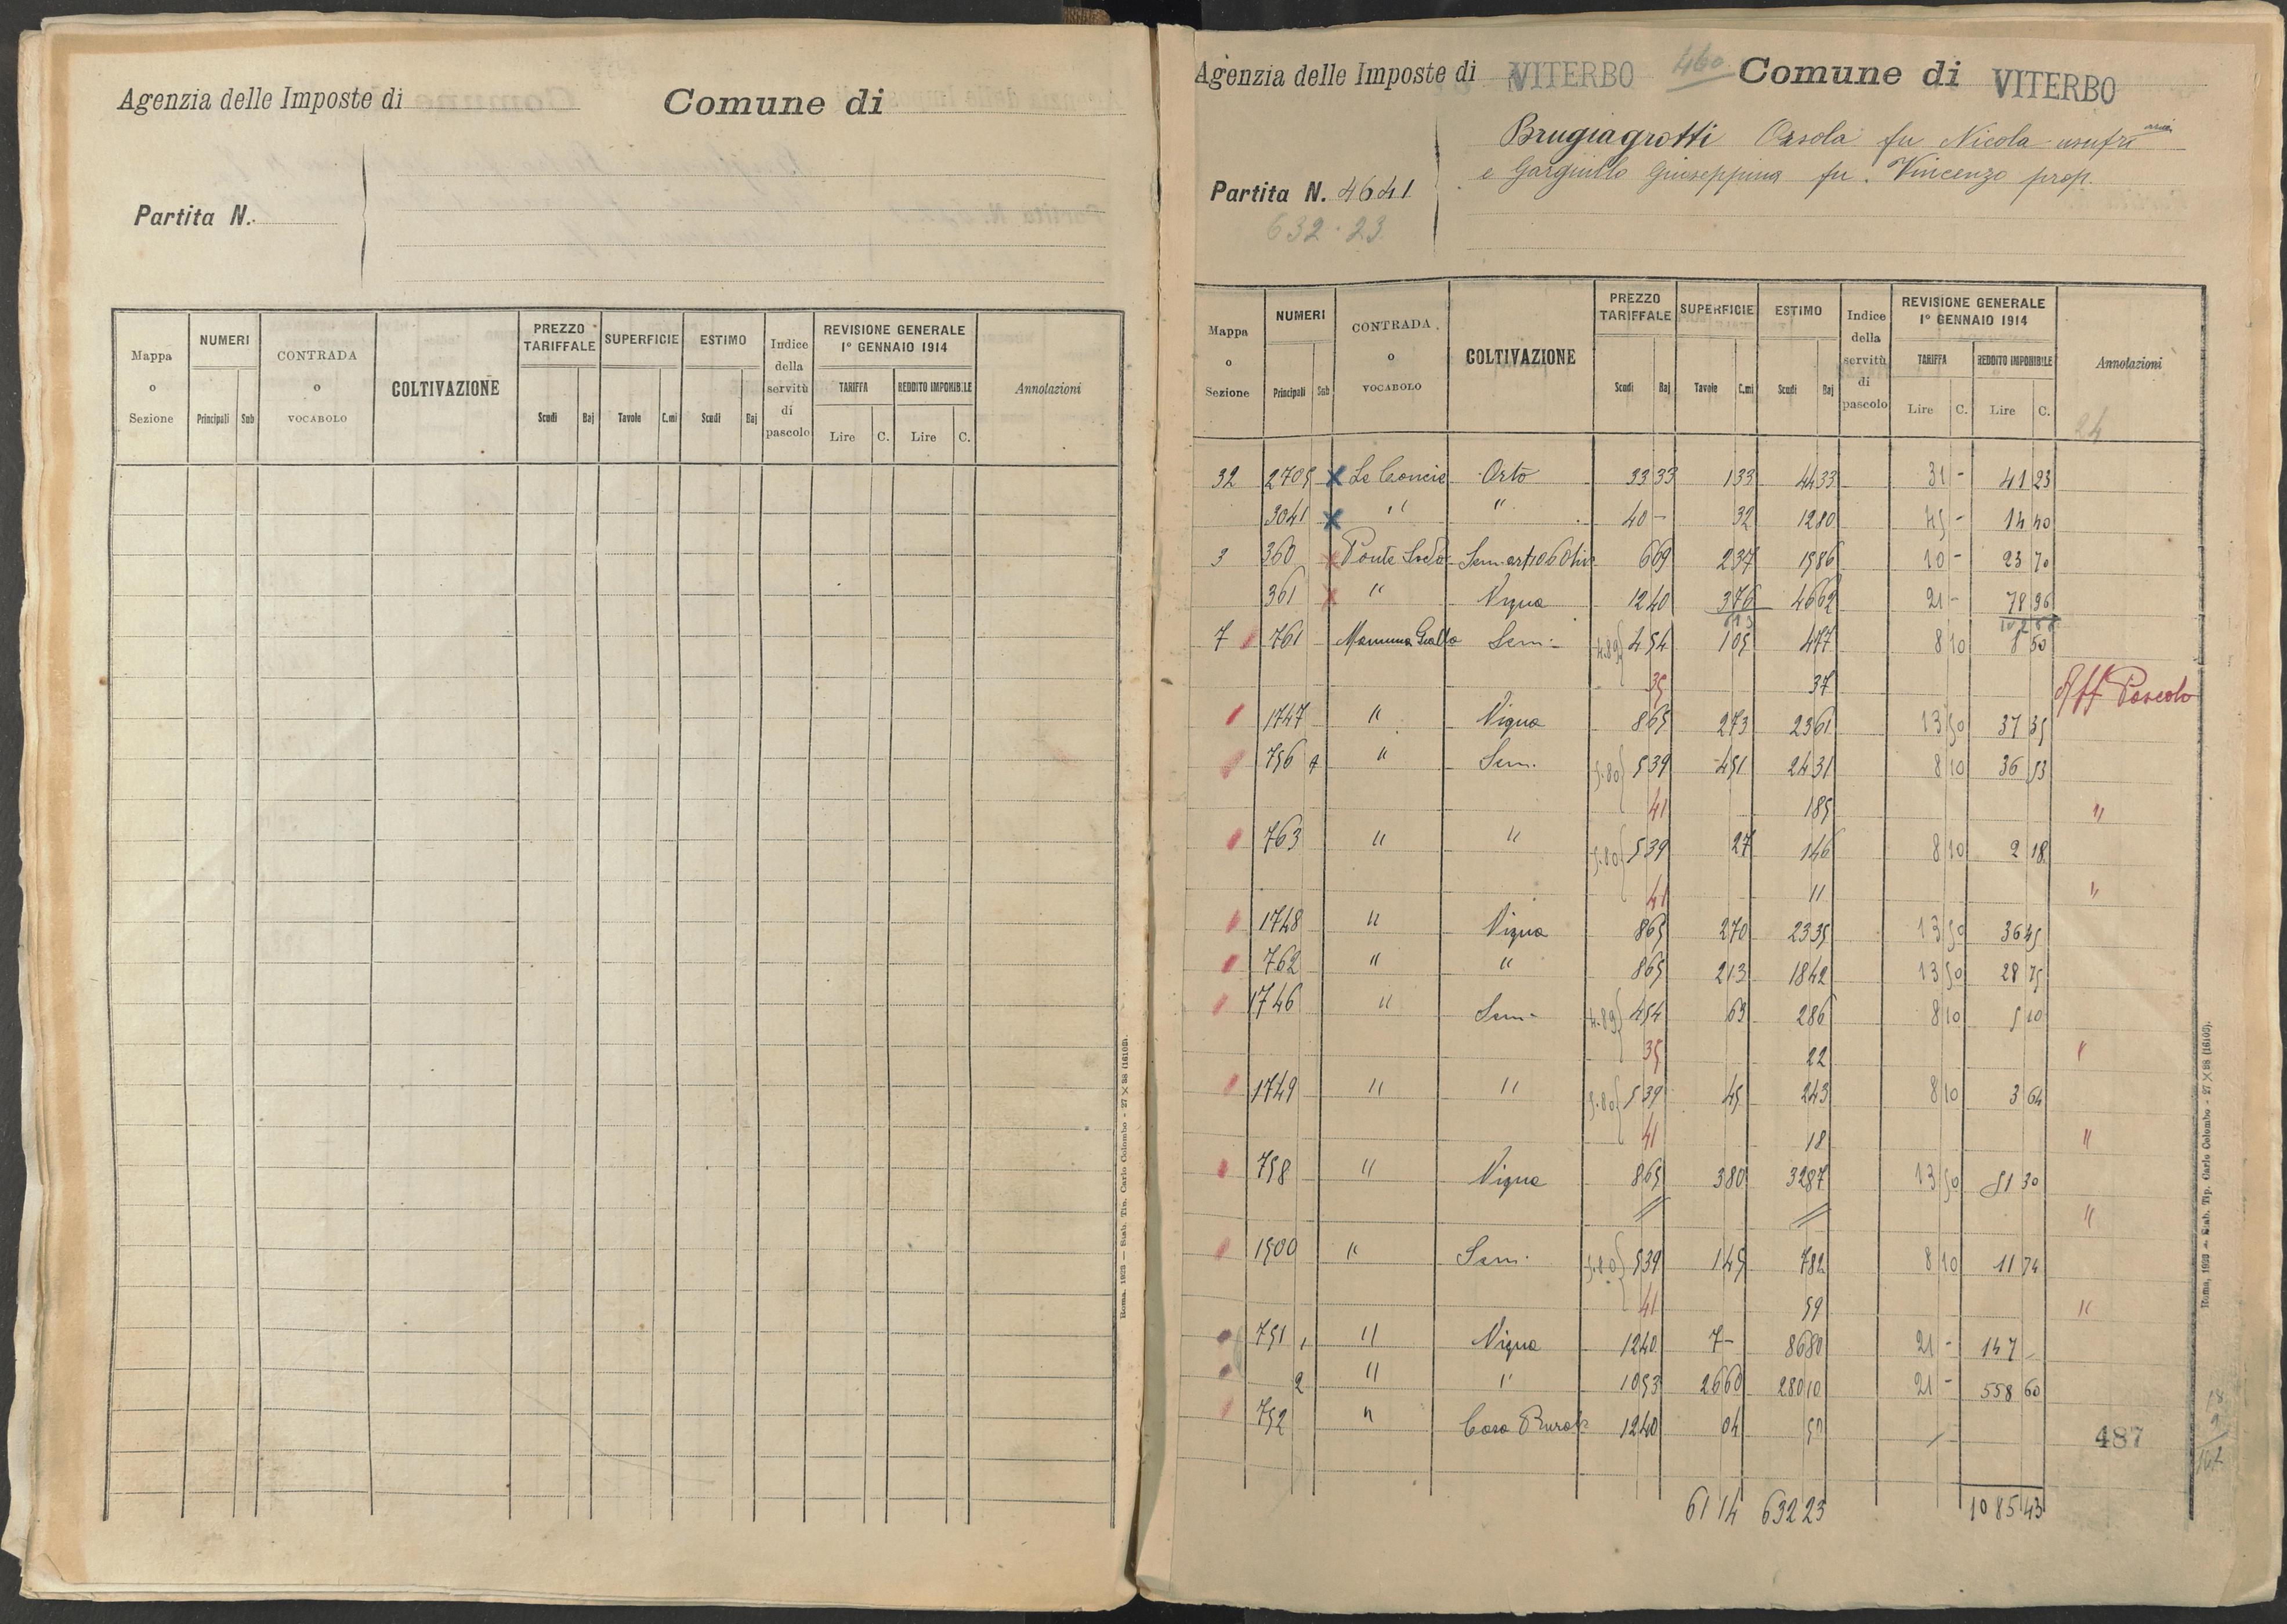 Agenzia delle Imposte di
Comune di
Partita N.
Mappa o Sezione
NUMERI
Principali Sub
CONTRADA o VOCABOLO
COLTIVAZIONE
PREZZO TARIFFALE
Scudi Baj
SUPERFICIE
Tavole C.mi
ESTIMO
Scudi Baj
Indice della servitù di pascolo
REVISIONE GENERALE 1° GENNAIO 1914
TARIFFA
Lire C.
REDDITO IMPONIBILE
Lire C.
Annotazioni
Agenzia delle Imposte di VITERBO 460 Comune di VITERBO
Brugiagrotti Orsola fu Nicola usufr
e Gargiullo Giuseppina fu Vincenzo prop.
Partita N. 4641
632.23
Mappa o Sezione
NUMERI
Principali Sub
CONTRADA o VOCABOLO
COLTIVAZIONE
PREZZO TARIFFALE
Scudi Baj
SUPERFICIE
Tavole C.mi
ESTIMO
Scudi Baj
Indice della servitù di pascolo
REVISIONE GENERALE 1° GENNAIO 1914
TARIFFA
Lire C.
REDDITO IMPONIBILE
Lire C.
Annotazioni
24
32 2705 x Le Concie Orto 33 33 1 33 44 33 31 - 41 23
3041 x " " 40 - 32 12 80 45 - 14 40
3 360 x Ponte Sodo 6 69 2 37 15 86 10 - 23 70
361 x " Vigna 12 40 3 76 46 62 21 - 78 96
7 761 Sem: 4.89 4 54 1 05 4 77 8 10 8 50
35 37 Aff Pascolo
1747 " Vigna 8 65 2 73 23 61 13 50 37 35
756 " Sem. 5.80 5 39 4 51 24 31 8 10 36 53
41 1 85 "
763 " " 5.80 5 39 27 1 46 8 10 2 18
41 11 "
1748 " Vigna 8 65 2 70 23 35 13 50 36 45
762 " " 8 65 2 13 18 42 13 50 28 75
1746 " Sem: 4.89 4 54 63 2 86 8 10 5 10
35 22 "
1749 " " 5.80 5 39 45 2 43 8 10 3 64
41 18 "
758 " Vigna 8 65 3 80 32 87 13 50 51 30
"
1500 " Sem: 5.80 5 39 1 45 7 82 8 10 11 74
41 59 "
751 1 " Vigna 12 40 7 - 86 80 21 - 147 -
2 " " 10 53 26 60 280 10 21 - 558 60
752 " Casa Rurale 12 40 04 50
487
61 14 632 23 1085 43
Roma, 1923 — Stab. Tip. Carlo Colombo - 27 × 88 (16100).